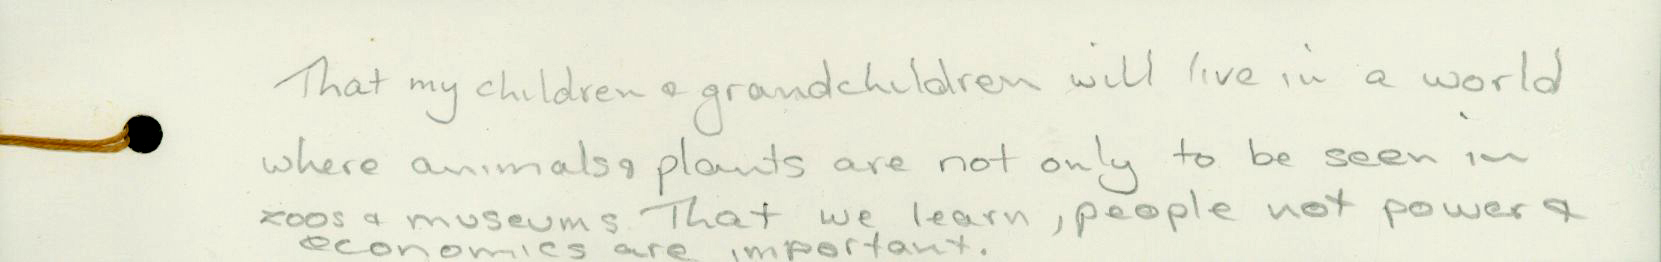 That my children & grandchildren will live in a world
where animals & plants are not only to be seen in
zoos & museums. That we learn, people not power &
economics are important.